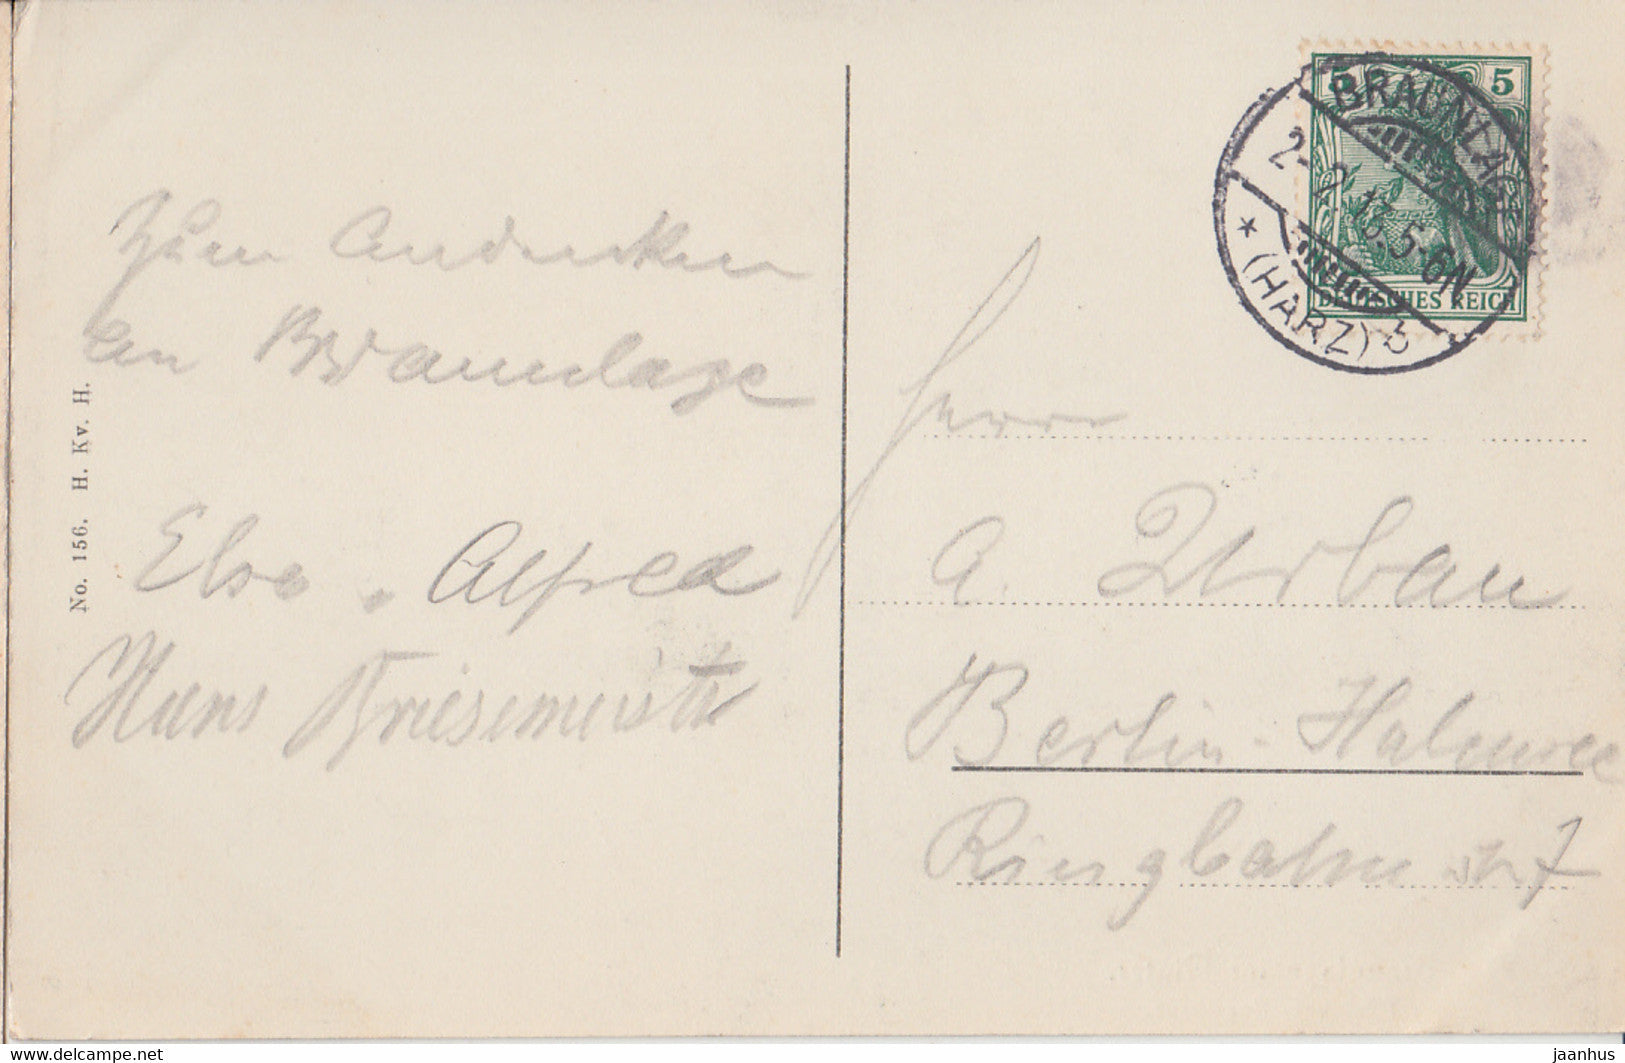 Zum Andenken
an Braunlage
Else. Alfred
Hans Briesemeister
No. 156. H. Kv. H.
5 5
BRAUNLAGE
2.2.13.5-6N
* (HARZ)
DEUTSCHES REICH
Herrn
A. Urban
Berlin-Halensee
Ringbahnstr 7
www.delcampe.net
jaanhus